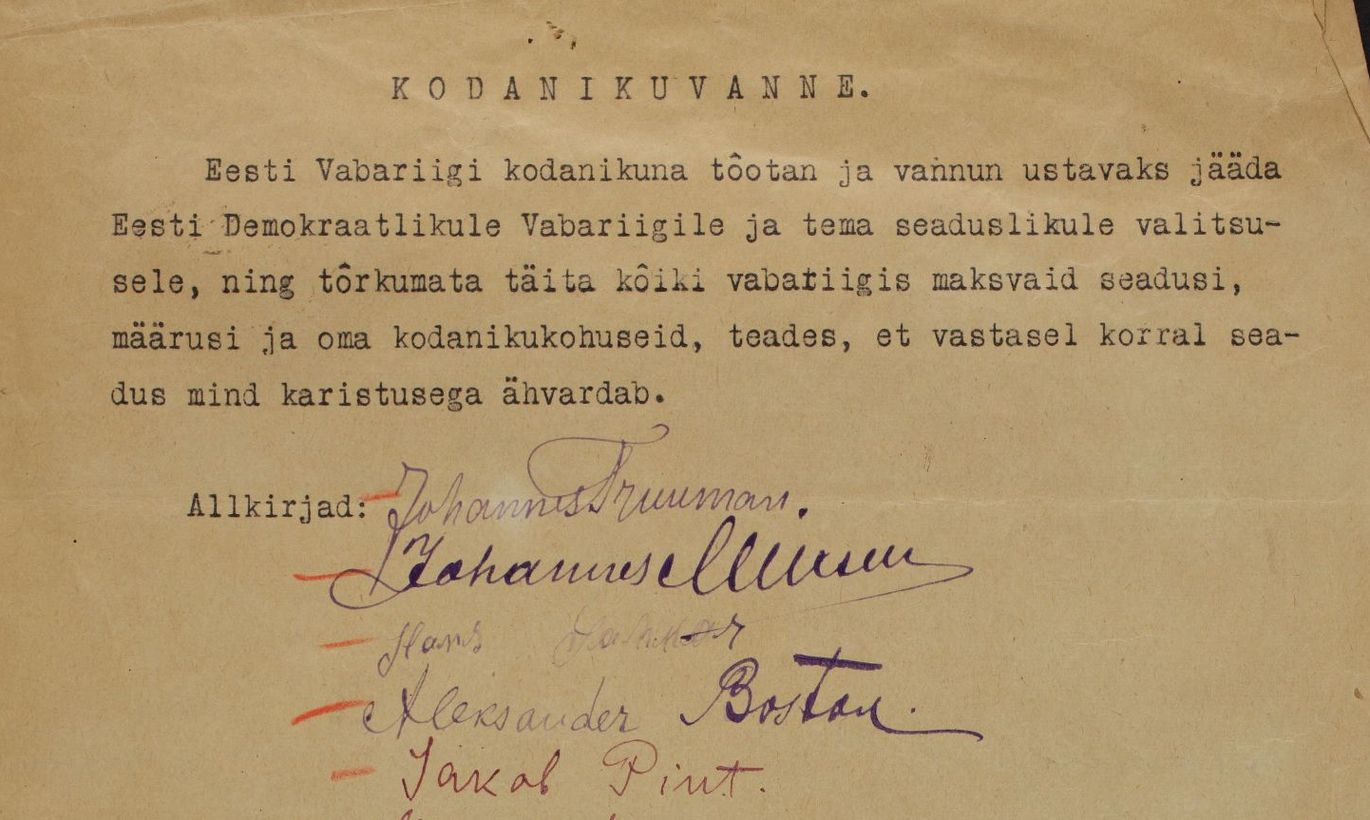 KODANIKUVANNE.
Eesti Vabariigi kodanikuna tôotan ja vannun ustavaks jääda
Eesti Demokraatlikule Vabariigile ja tema seaduslikule valitsu-
sele, ning tôrkumata täita kôiki vabariigis maksvaid seadusi,
määrusi ja oma kodanikukohuseid, teades, et vastasel korral sea-
dus mind karistusega ähvardab.
Allkirjad: Johannes Truuman.
Johannes
Hans
Aleksander Boston.
Jakob Pint.